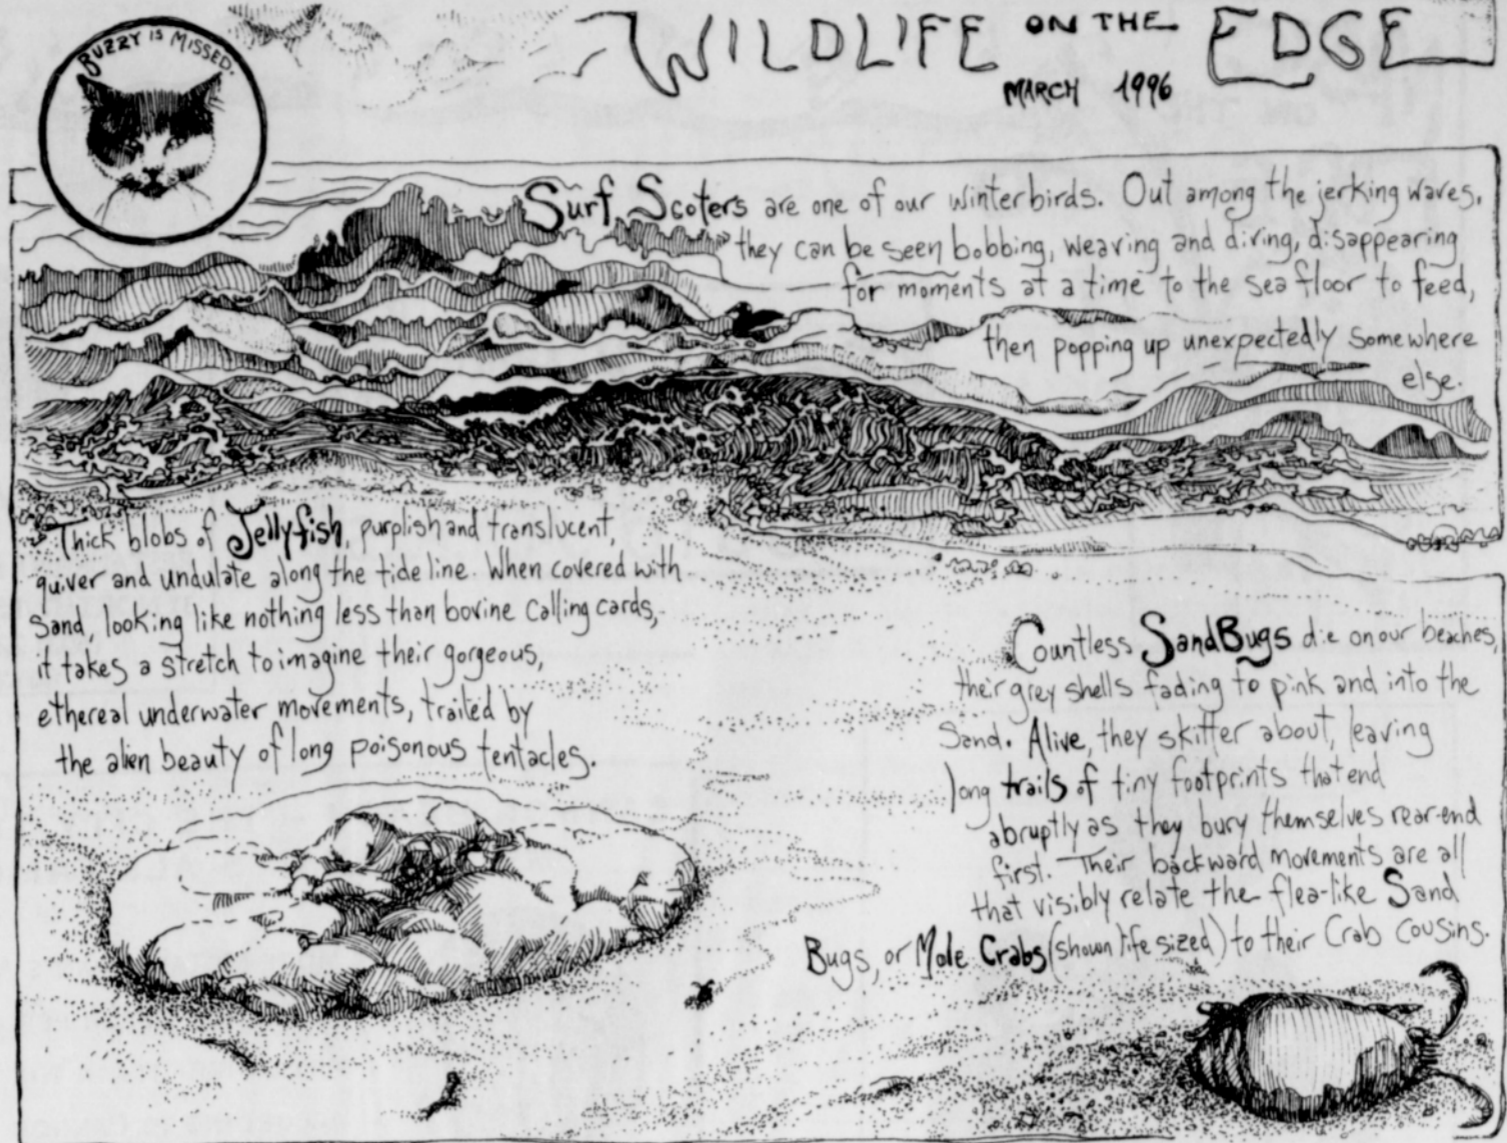 BUZZY IS MISSED.
WILDLIFE ON THE EDGE
MARCH 1996
Surf Scoters are one of our winterbirds. Out among the jerking waves,
they can be seen bobbing, weaving and diving, disappearing
for moments at a time to the sea floor to feed,
then popping up unexpectedly somewhere
else.
Thick blobs of Jellyfish, purplish and translucent,
quiver and undulate along the tide line. When covered with
sand, looking like nothing less than bovine calling cards,
it takes a stretch to imagine their gorgeous,
ethereal underwater movements, trailed by
the alien beauty of long poisonous tentacles.
Countless SandBugs die on our beaches,
their grey shells fading to pink and into the
sand. Alive, they skitter about, leaving
long trails of tiny footprints that end
abruptly as they bury themselves rear-end
first. Their backward movements are all
that visibly relate the flea-like Sand
Bugs, or Mole Crabs (shown life sized) to their Crab cousins.